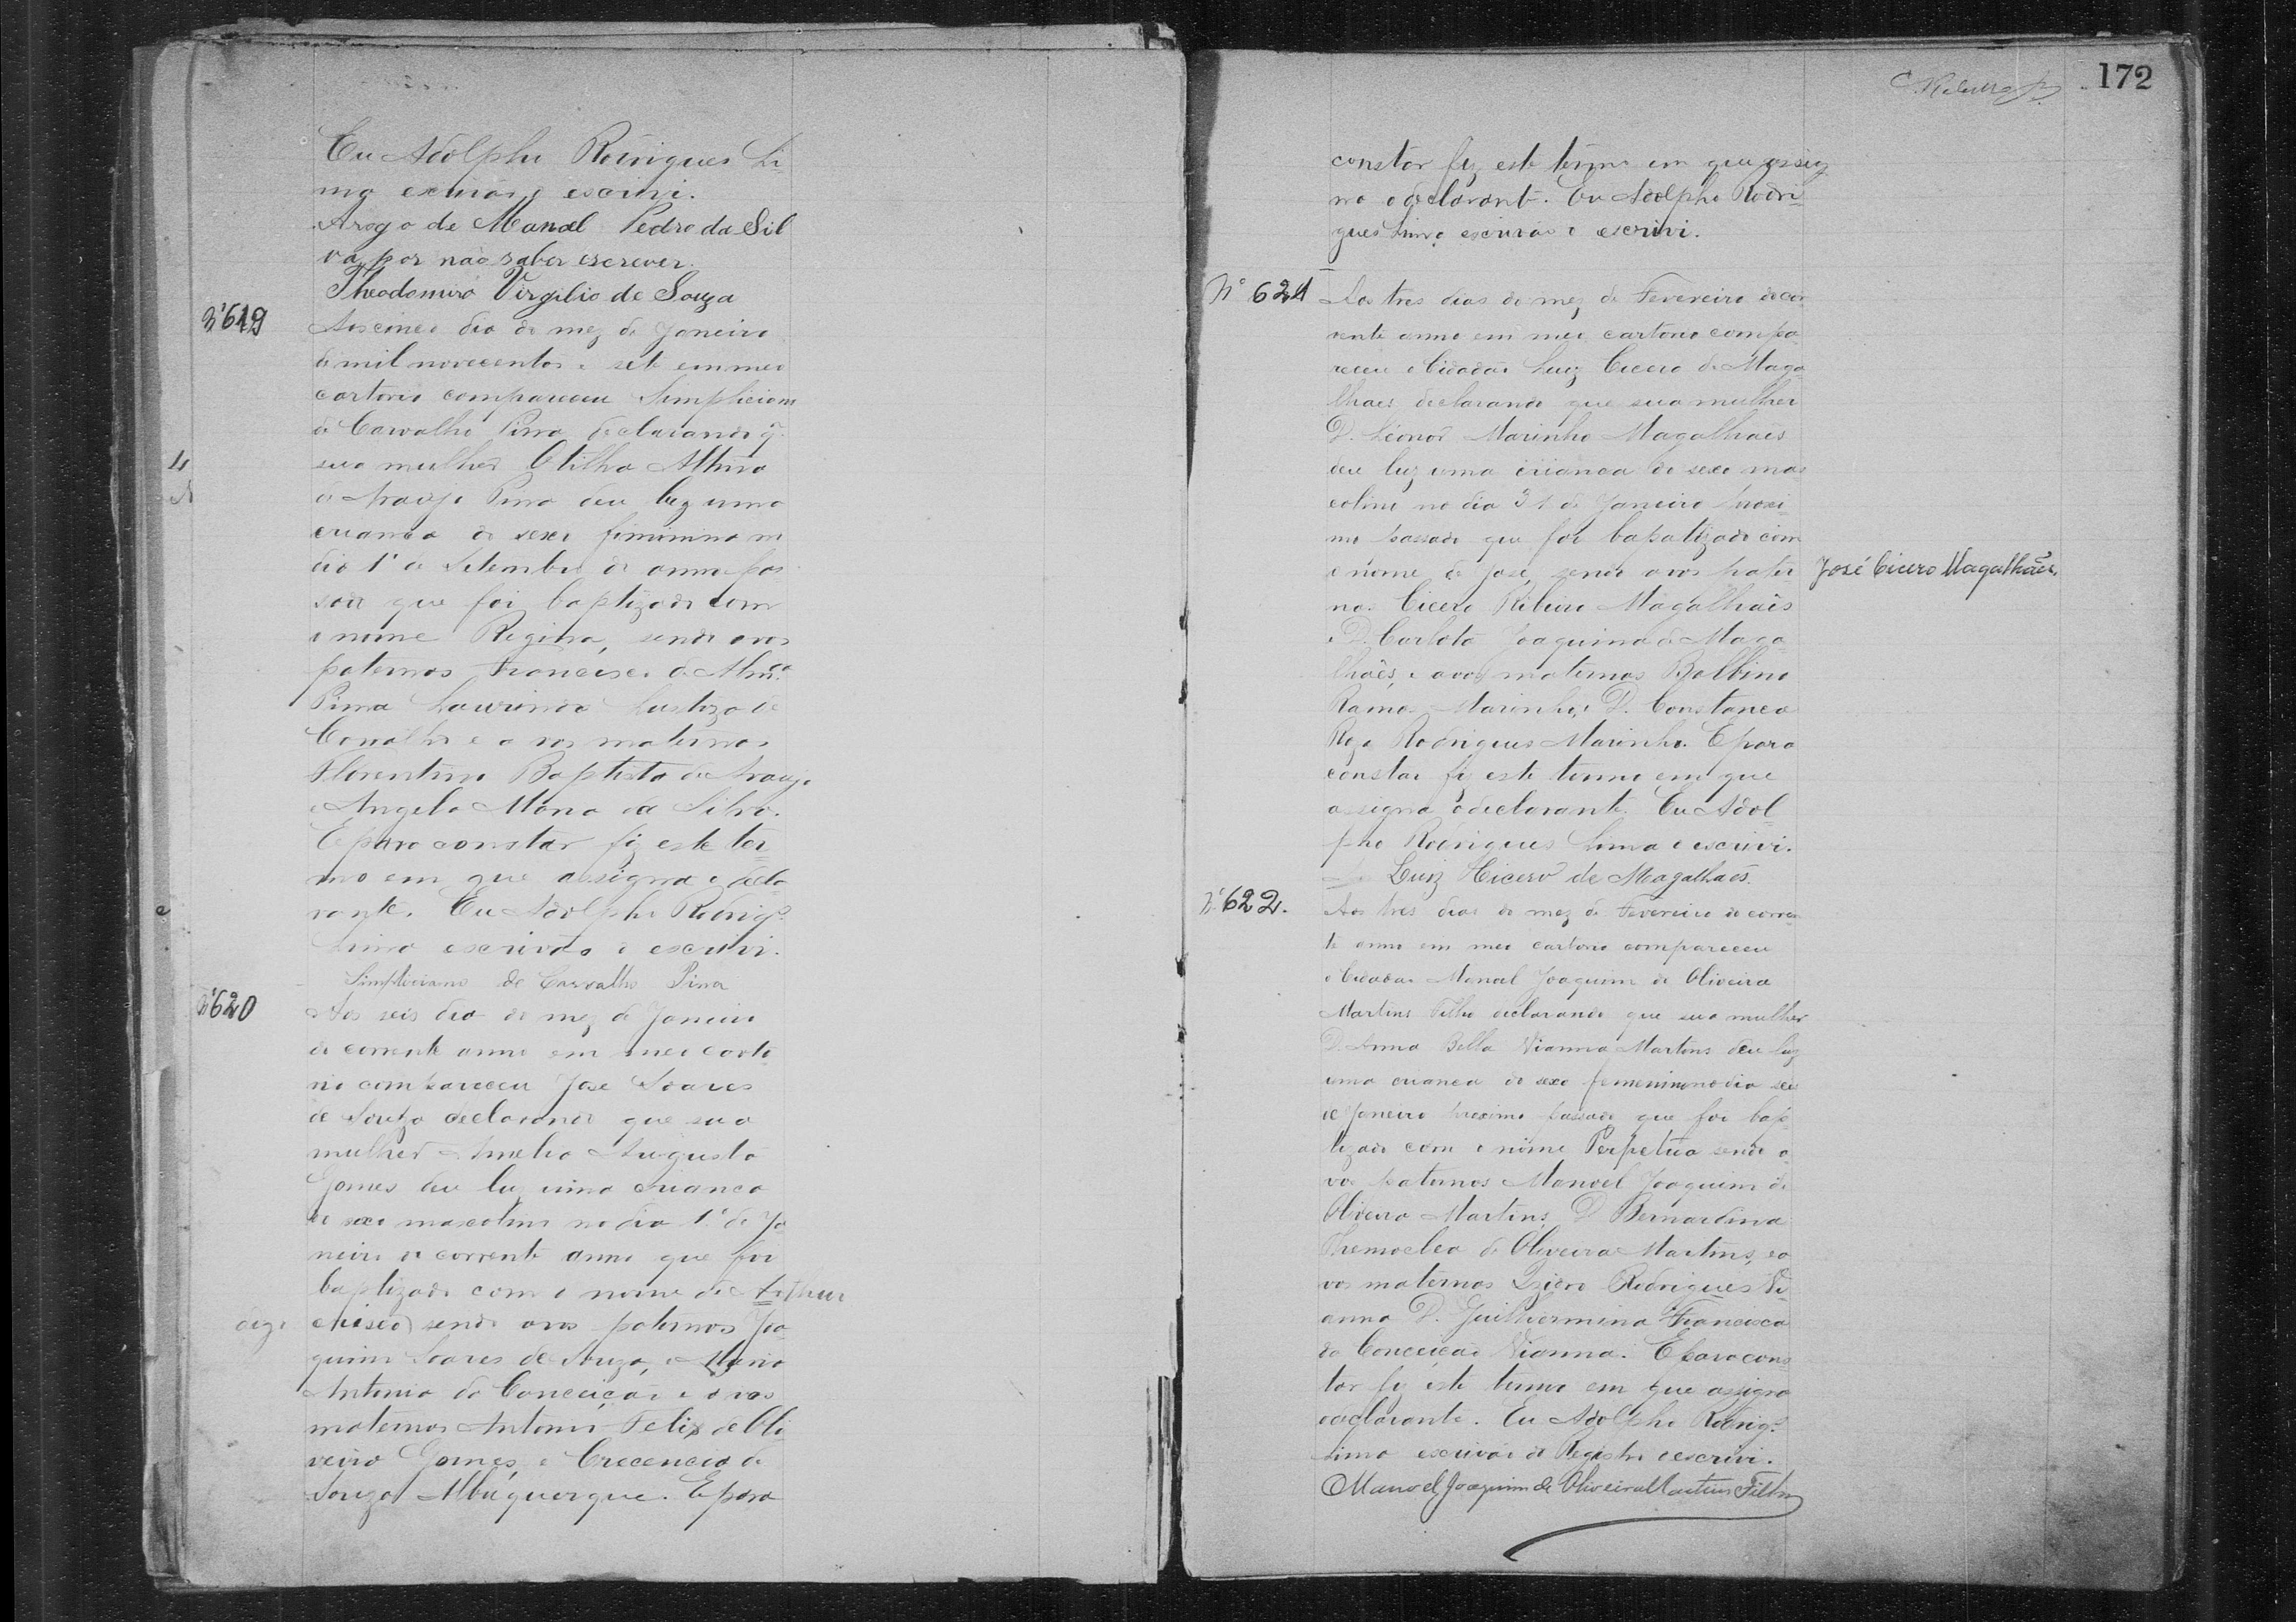 Eu Adolpho Rodrigues Li-
ma escrivão o escrivi.
Arogo de Manoel Pedro da Sil
va por não saber escrever.
Theodomiro Virgilio de Souza
Nº 619
Aos cinco dia do mez de Janeiro
de mil novecentos e sete em meo
cartorio compareceu Simpliciano
de Carvalho Pina declarando q.
sua mulher Otilha Altina
de Araujo Pina deu luz uma
creanca do sexo feminino no
dia 1º de Setembro do anno pas
sado que foi baptizado com
o nome Regina, sendo avos
paternos Francisco de
Pina Laurinda de
Carvalho e avos maternos
Florentino Baptista de Araujo
e Angela Maria da Silva.
E para constar fiz este ter-
mo em que assigna o decla
rante. Eu Adolpho Rodrigs
Lima escrivão o escrivi.
Simpliciano de Carvalho Pina
Nº 620
Aos seis dia do mez de Janeiro
do corrente anno em meo carto
rio compareceu José Soares
de Souza declarando que sua
mulher Amelia Augusta
Gomes deu luz uma creanca
do sexo mascolino no dia 1º de Ja
neiro do corrente anno que foi
baptizado com o nome de Arthur
sendo avos paternos Joa
quim Soares de Souza, e Maria
Antonia da Conceição e avos
maternos Antonio Felix de Oli
veira Gomes, e Crecencia de
Souza Albuquerque. E para
172
constar fiz este termo em que assig
na o declarante. Eu Adolpho Rodri-
gues Lima escrivão o escrivi.
Nº 621
Aos tres dias do mez de Fevereiro do cor
rente anno em meo cartorio compa-
receu o Cidadão Luiz Cicero de Maga-
lhaes declarando que sua mulher
D. Leonor Marinho Magalhaes
deu luz uma crianca do sexo mas
colino no dia 31 de Janeiro proxi-
mo passado que foi bapatizado com
o nome de José, sendo avos pater
José Cicero Magalhães.
nos Cicero Ribeiro Magalhaês
e D. Carlota Joaquina de Maga-
lhaês, e avos maternos Balbino
Ramos Marinho, D. Constanca
Roza Rodrigues Marinho. E para
constar fiz este termo em que
assigna o declarante. Eu Adol
pho Rodrigues Lima o escrivi.
Luiz Cicero de Magalhaes.
Nº 622.
Aos tres dias do mez de Fevereiro do corren
te anno em meo cartorio compareceu
o Cidadão Manoel Joaquim de Oliveira
Martins Filho declarando que sua mulher
D. Anna Bella Vianna Martins deu luz
uma creanca do sexo femenino no dia seis
de Janeiro proximo passado que foi bap
tizado com o nome Perpetua sendo a-
vos paternos Manoel Joaquim de
Oliveira Martins, D. Bernardina
de Oliveira Martins, e a
vos maternos Izidro Rodrigues Vi-
anna D. Guilhermina Francisca
da Conceição Vianna. E para cons
tar fiz este termo em que assigna
o declarante. Eu Adolpho Rodrigs
Lima escrivão do Registro o escrivi.
Manoel Joaquim de Oliveira Martins Filho